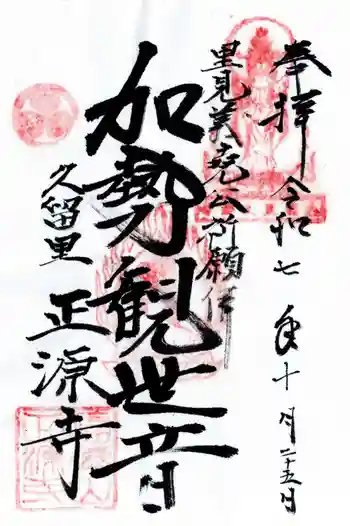 奉拝 令和七年十月二十五日
里見義堯公祈願仏
加勢観世音
久留里 正源寺